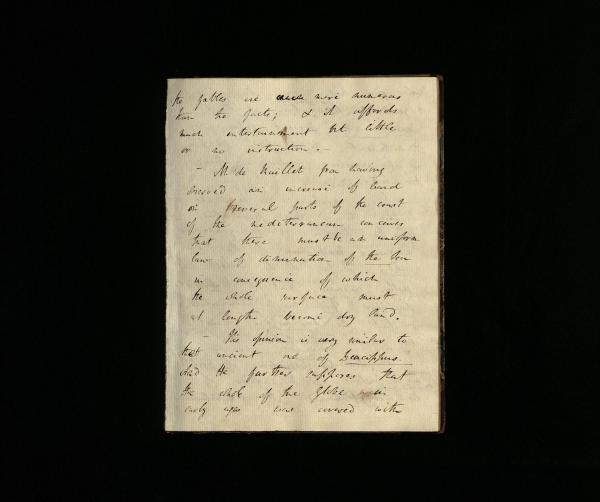 the fables are much more numerous
than the facts; & it affords
much entertainment but little
or no instruction. –
– M. de Maillet from having
observed an increase of land
on several parts of the coast
of the mediterranean conceives
that there must be an uniform
law of diminution of the Sea
in consequence of which
the whole surface must
at length become dry land.
– His opinion is very similar to
that ancient one of
And He further supposes that
the whole of the Globe in
early ages was covered with